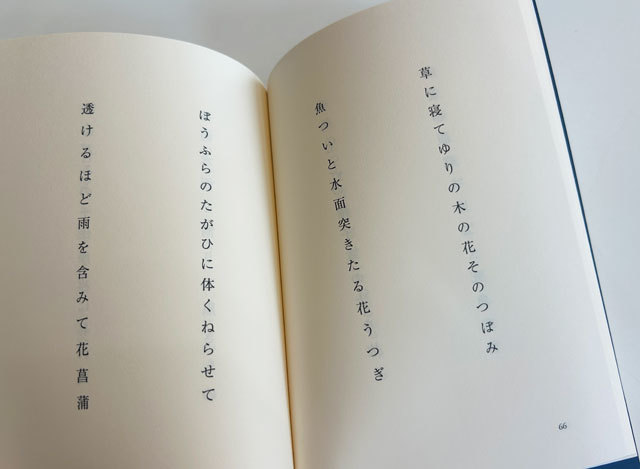 草に寝てゆりの木の花そのつぼみ
魚ついと水面突きたる花うつぎ
66
ぼうふらのたがひに体くねらせて
透けるほど雨を含みて花菖蒲